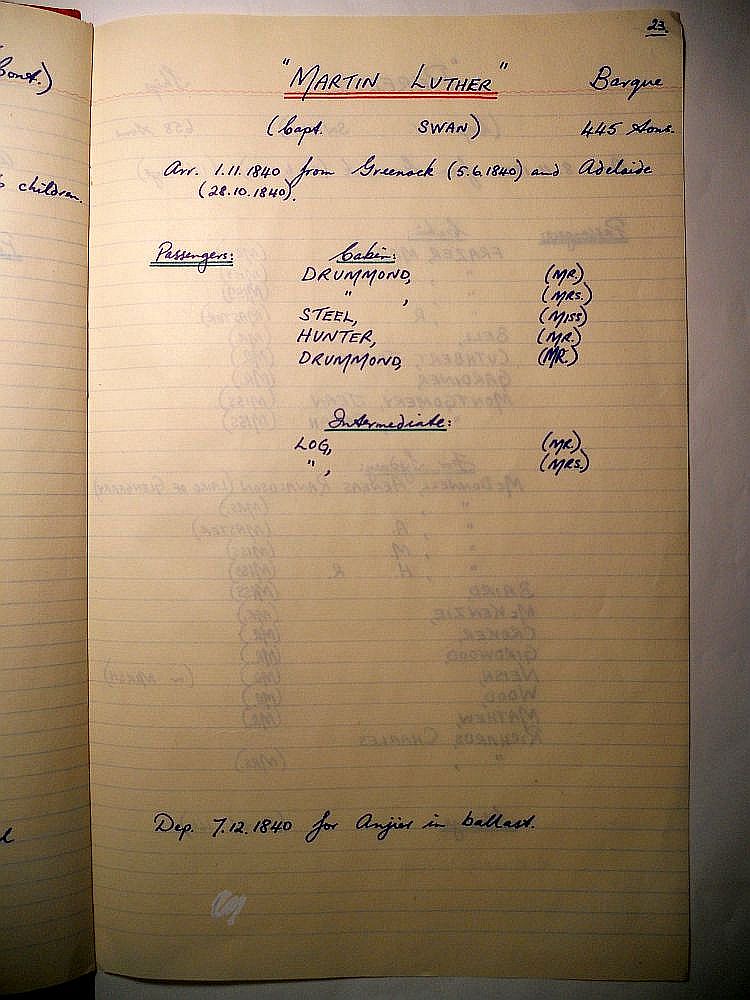 23.
"MARTIN LUTHER" Barque
(Capt. SWAN) 445 tons.
Arr. 1.11.1840 from Greenock (5.6.1840) and Adelaide
(28.10.1840).
Passengers: Cabin:
DRUMMOND, (MR.)
" , (MRS.)
STEEL, (MISS)
HUNTER, (MR.)
DRUMMOND, (MR.)
Intermediate:
LOG, (MR.)
" , (MRS.)
Dep. 7.12.1840 for Anjier in ballast.
Cont.)
children.